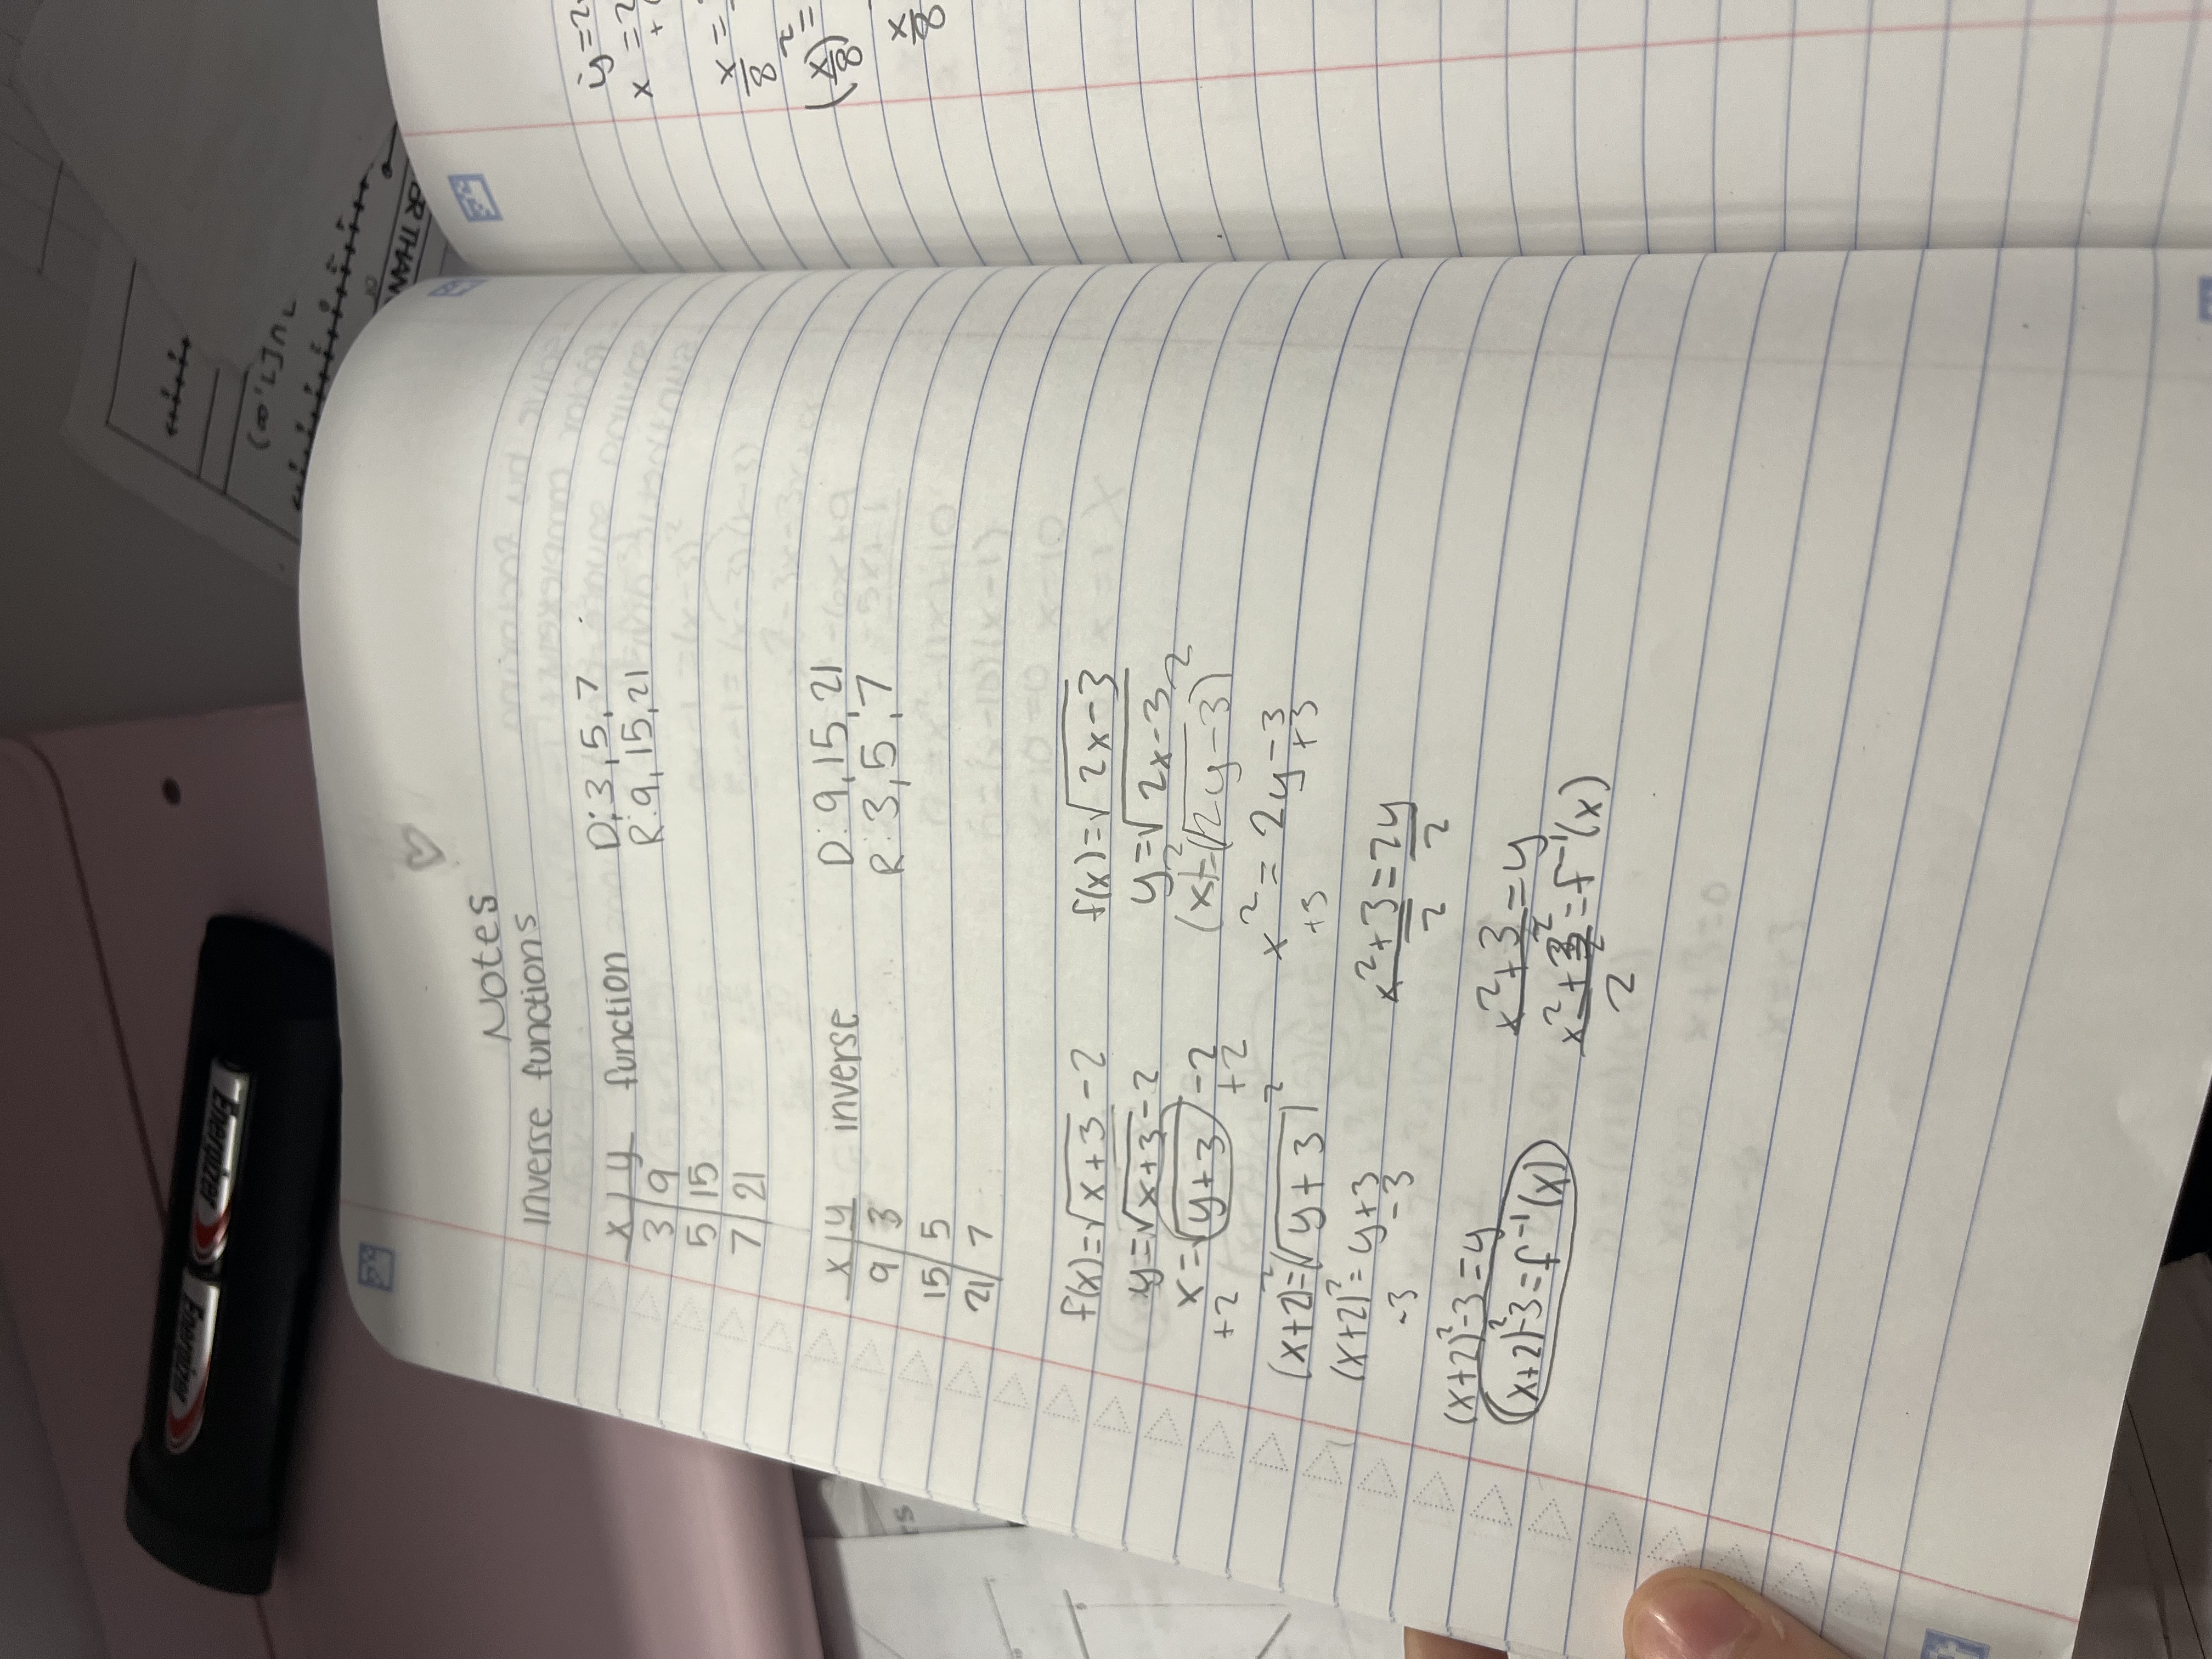 Notes
Inverse functions
x | y function D: 3, 5, 7
3 | 9 R: 9, 15, 21
5 | 15
7 | 21
x | y inverse D: 9, 15, 21
9 | 3 R: 3, 5, 7
15 | 5
21 | 7
f(x)=√x+3 -2
y=√x+3 -2
x=√y+3 -2
+2 +2
(x+2)²=(√y+3)²
(x+2)²=y+3
-3 -3
(x+2)²-3=y
(x+2)²-3=f⁻¹(x)
f(x)=√2x-3
y=√2x-3
(x)²=(√2y-3)²
x²=2y-3
+3 +3
x²+3=2y
2 2
x²+3=y
2
x²+3=f⁻¹(x)
2
y=2
x=2
+
x=
8
(x/8)²=
x
8
Energizer
Energizer
ER THAN